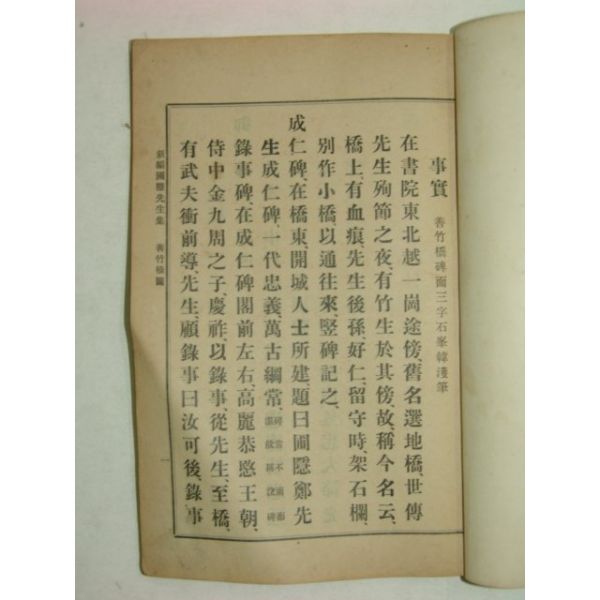 事實 善竹橋碑面三字石峯韓濩筆
在書院東北越一崗途傍、舊名選地橋、世傳
先生殉節之夜、有竹生於其傍故、稱今名云、
橋上、有血痕、先生後孫好仁、留守時、架石欄、
別作小橋以通往來、竪碑記之、
成仁碑、在橋東、開城人士所建、題曰圃隱鄭先
生成仁碑、一代忠義、萬古綱常、碑常不雨而濕故稱泣碑
錄事碑在成仁碑閣前左右、高麗恭愍王朝、
侍中金九周之子、慶祚、以錄事、從先生、至橋、
有武夫衝前導、先生、顧錄事曰汝可後、錄事
新編圃隱先生集 善竹橋圖